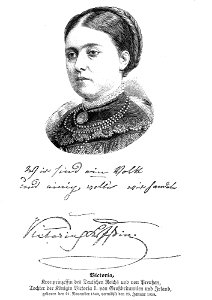 Wir sind ein Volk
und einig wollen wir handeln
Victoria
Victoria,
Kronprinzessin des Deutschen Reichs und von Preußen,
Tochter der Königin Victoria I. von Großbritannien und Irland,
geboren am 21. November 1840, vermählt am 25. Januar 1858.